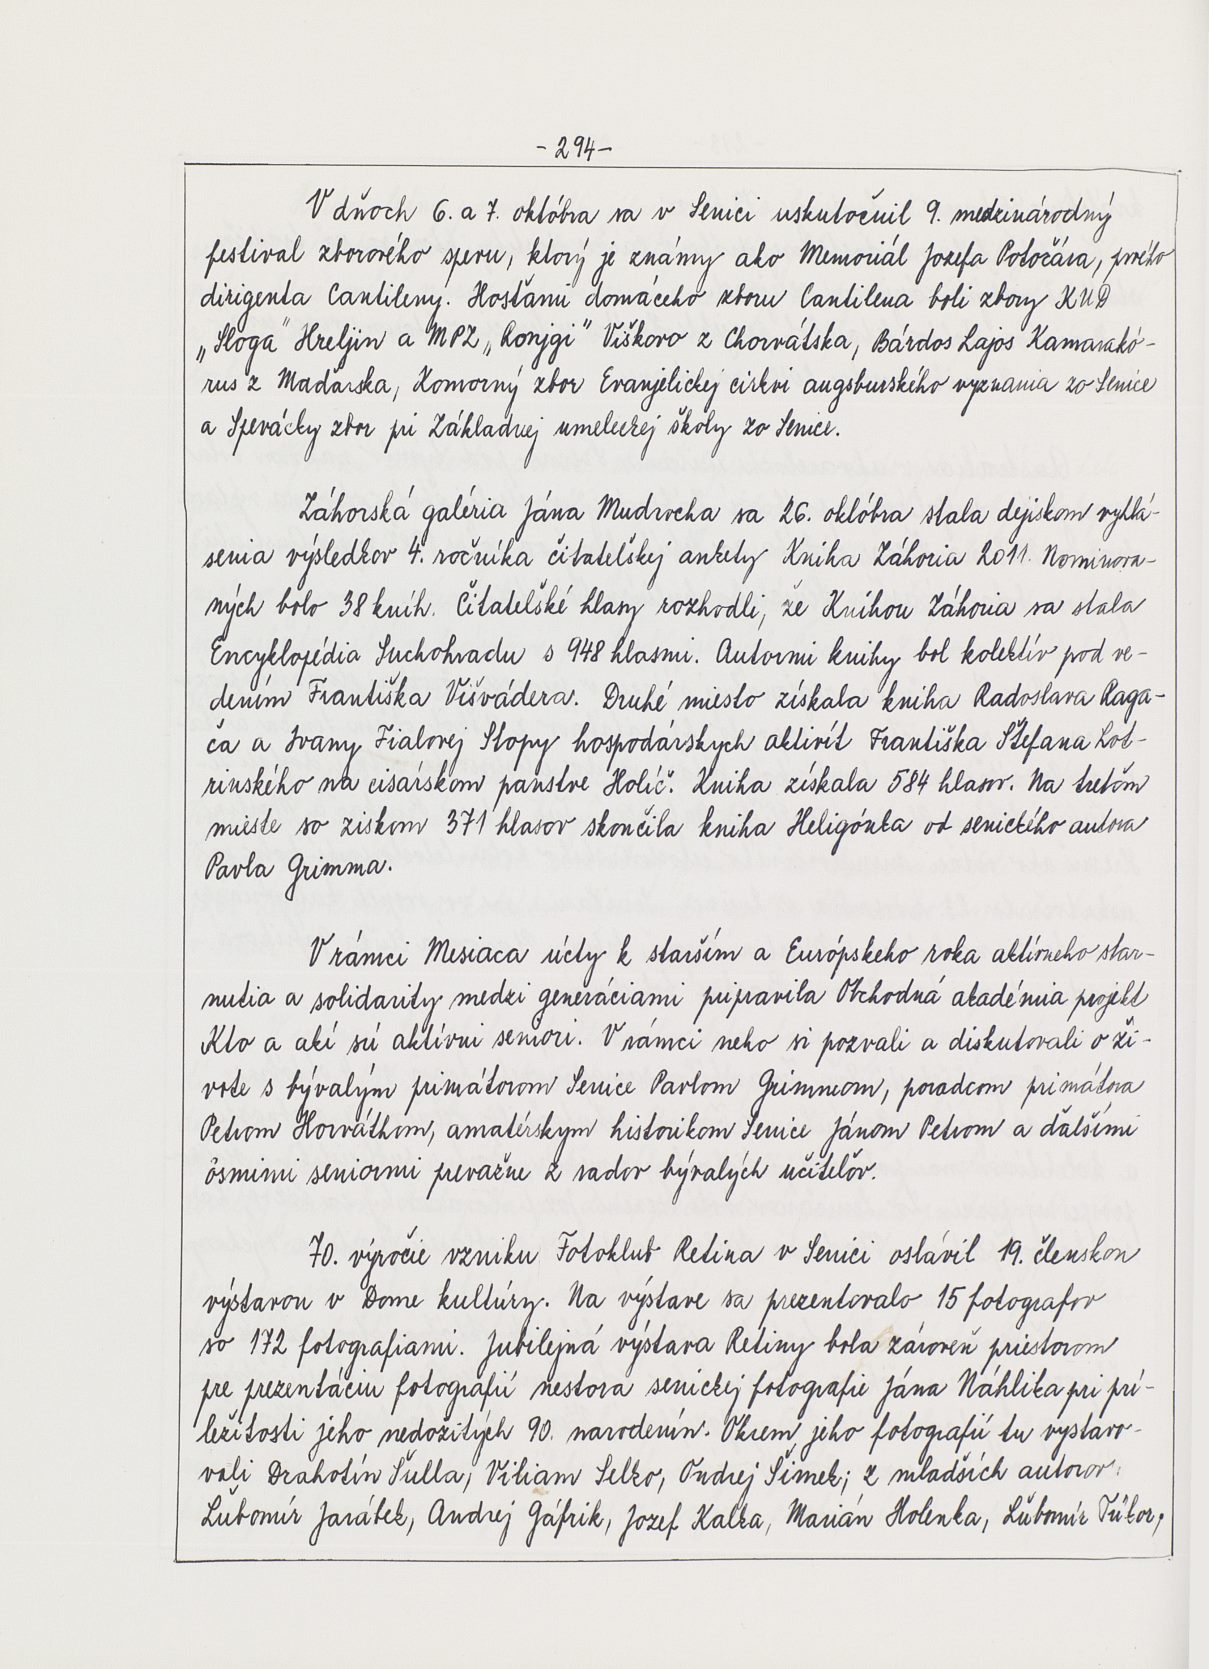 - 294 -
V dňoch 6. a 7. októbra sa v Senici uskutočnil 9. medzinárodný
festival zborového spevu, ktorý je známy ako Memoriál Jozefa Potočára, prvého
dirigenta Cantileny. Hosťami domáceho zboru Cantilena boli zbory KUD
„Sloga" Hreljin a MPZ „Ronjgi" Viškovo z Chorvátska, Bárdos Lajos Kamarakó-
rus z Maďarska, Komorný zbor Evanjelickej cirkvi augsburského vyznania zo Senice
a Spevácky zbor pri Základnej umeleckej školy zo Senice.
Záhorská galéria Jána Mudrocha sa 26. októbra stala dejiskom vyhlá-
senia výsledkov 4. ročníka čitateľskej ankety Kniha Záhoria 2011. Nominova-
ných bolo 38 kníh. Čitateľské hlasy rozhodli, že Knihou Záhoria sa stala
Encyklopédia Suchohradu s 948 hlasmi. Autormi knihy bol kolektív pod ve-
dením Františka Višvádera. Druhé miesto získala kniha Radoslava Raga-
ča a Ivany Fialovej Stopy hospodárskych aktivít Františka Štefana Lot-
rinského na cisárskom panstve Holíč. Kniha získala 584 hlasov. Na treťom
mieste so ziskom 371 hlasov skončila kniha Heligónka od senického autora
Pavla Grimma.
V rámci Mesiaca úcty k starším a Európskeho roka aktívneho star-
nutia a solidarity medzi generáciami pripravila Obchodná akadémia projekt
Kto a akí sú aktívni seniori. V rámci neho si pozvali a diskutovali o ži-
vote s bývalým primátorom Senice Pavlom Grimmom, poradcom primátora
Petrom Horváthom, amatérskym historikom Senice Jánom Petrom a ďalšími
ôsmimi seniormi prevažne z radov bývalých učiteľov.
70. výročie vzniku Fotoklub Retina v Senici oslávil 19. členskou
výstavou v Dome kultúry. Na výstave sa prezentovalo 15 fotografov
so 172 fotografiami. Jubilejná výstava Retiny bola zároveň priestorom
pre prezentáciu fotografií nestora senickej fotografie Jána Náhlika pri prí-
ležitosti jeho nedožitých 90. narodenín. Okrem jeho fotografií tu vystavo-
vali Drahotín Šulla, Viliam Selko, Ondrej Šimek; z mladších autorov:
Ľubomír Jarábek, Andrej Gáfrik, Jozef Kalka, Marián Holenka, Ľubomír Túkor,